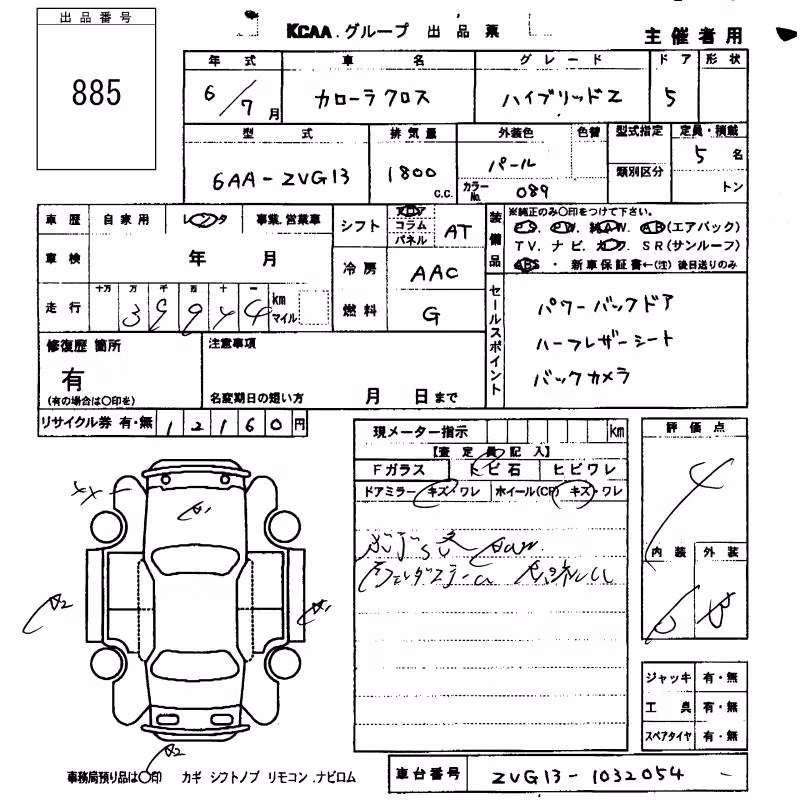 出品番号
885
KCAA.グループ 出品票
主催者用
年式 車名 グレード ドア 形状
6/7月 カローラクロス ハイブリッドZ 5
型式 排気量 外装色 色替 型式指定 定員・積載
6AA-ZVG13 1800 c.c. パール 5名
類別区分 トン
カラーNo. 089
車歴 自家用 レンタ 事業.営業車
シフト フロア コラム パネル AT
装備品
※純正のみ〇印をつけて下さい。
PS. PW. 純AW. AB(エアバック)
TV. ナビ. カワ. SR(サンルーフ)
ABS ・ 新車保証書←(注)後日送りのみ
車検 年 月
冷房 AAC
走行 十万 万 千 百 十 一
39944 km マイル
燃料 G
セールスポイント
パワーバックドア
ハーフレザーシート
バックカメラ
修復歴 箇所
有
(有の場合は〇印を)
注意事項
名変期日の短い方 月 日まで
リサイクル券 有・無 12160円
現メーター指示 km
【査定員記入】
Fガラス トビ石 ヒビワレ
ドアミラー キズ・ワレ ホイール(CP) キズ・ワレ
評価点
4
内装 外装
XX
A1
A2
A1
A2
ジャッキ 有・無
工具 有・無
スペアタイヤ 有・無
事務局預り品は〇印 カギ シフトノブ リモコン.ナビロム
車台番号 ZVG13-1032054